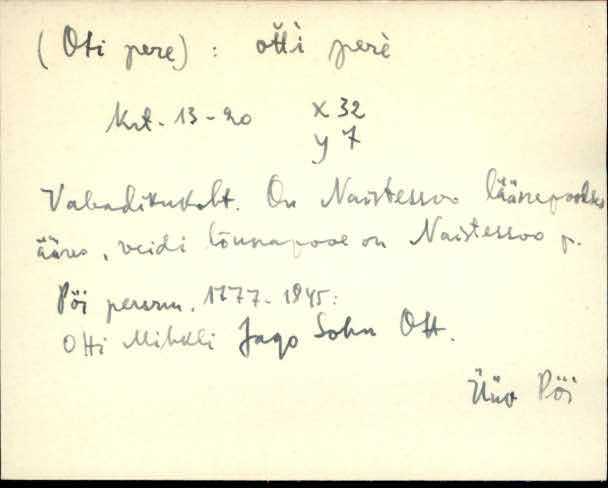 (Oti pere) : otti perè
Krt. 13-20 x 32
y 7
Vabadikukoht. On Naistessoo läänepoolses
ääres, veidi lõunapool on Naistessoo p.
Pöi persrm. 1777-1845:
Otti Mihkli Jago Sohn Ott.
Pöi